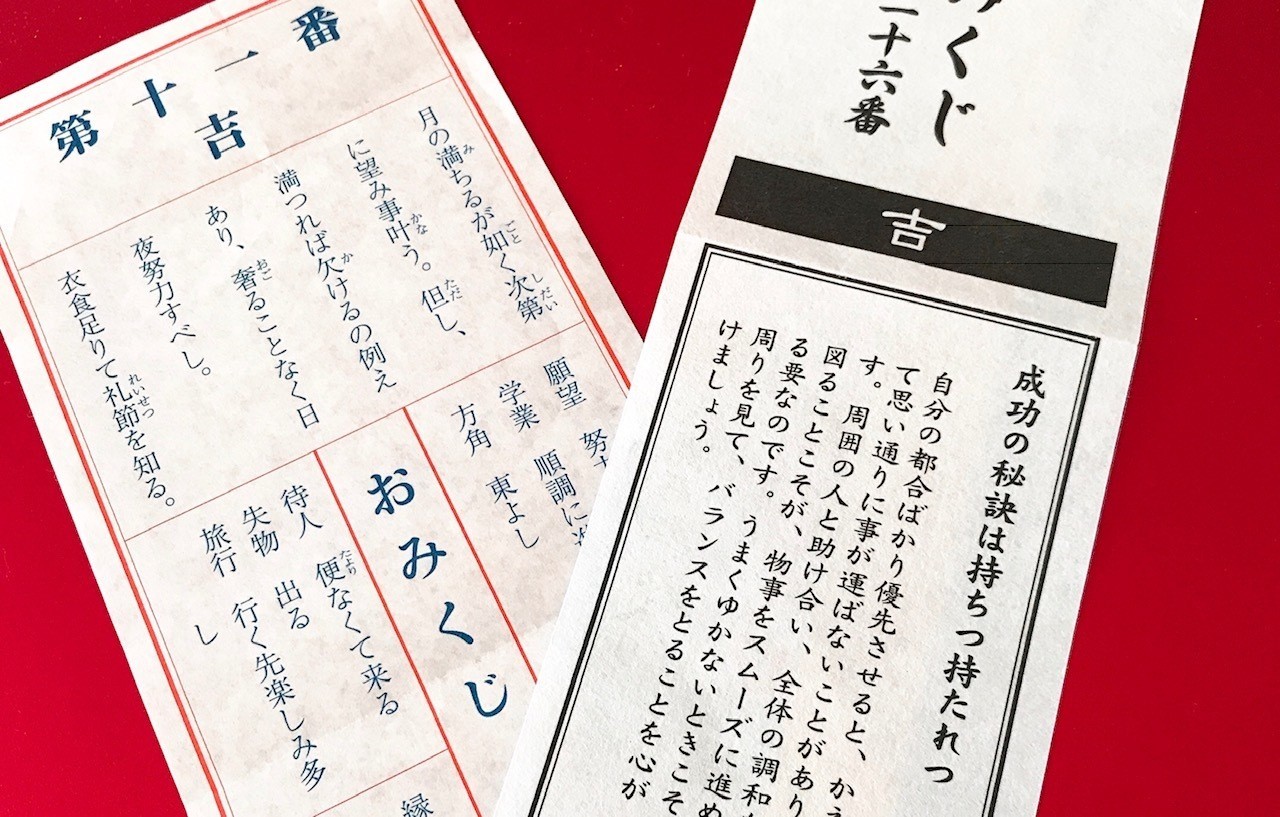 第十一番
吉
月の満ちるが如く次第
に望み事叶う。但し、
満つれば欠けるの例え
あり、奢ることなく日
夜努力すべし。
衣食足りて礼節を知る。
願望 努
学業 順調に
方角 東よし
おみくじ
待人 便なくて来る
失物 出る
旅行 行く先楽しみ多
し
縁
みくじ
十六番
吉
成功の秘訣は持ちつ持たれつ
自分の都合ばかり優先させると、かえ
て思い通りに事が運ばないことがあり
す。周囲の人と助け合い、全体の調和
図ることこそが、物事をスムーズに進め
る要なのです。うまくゆかないときこそ
周りを見て、バランスをとることを心が
けましょう。